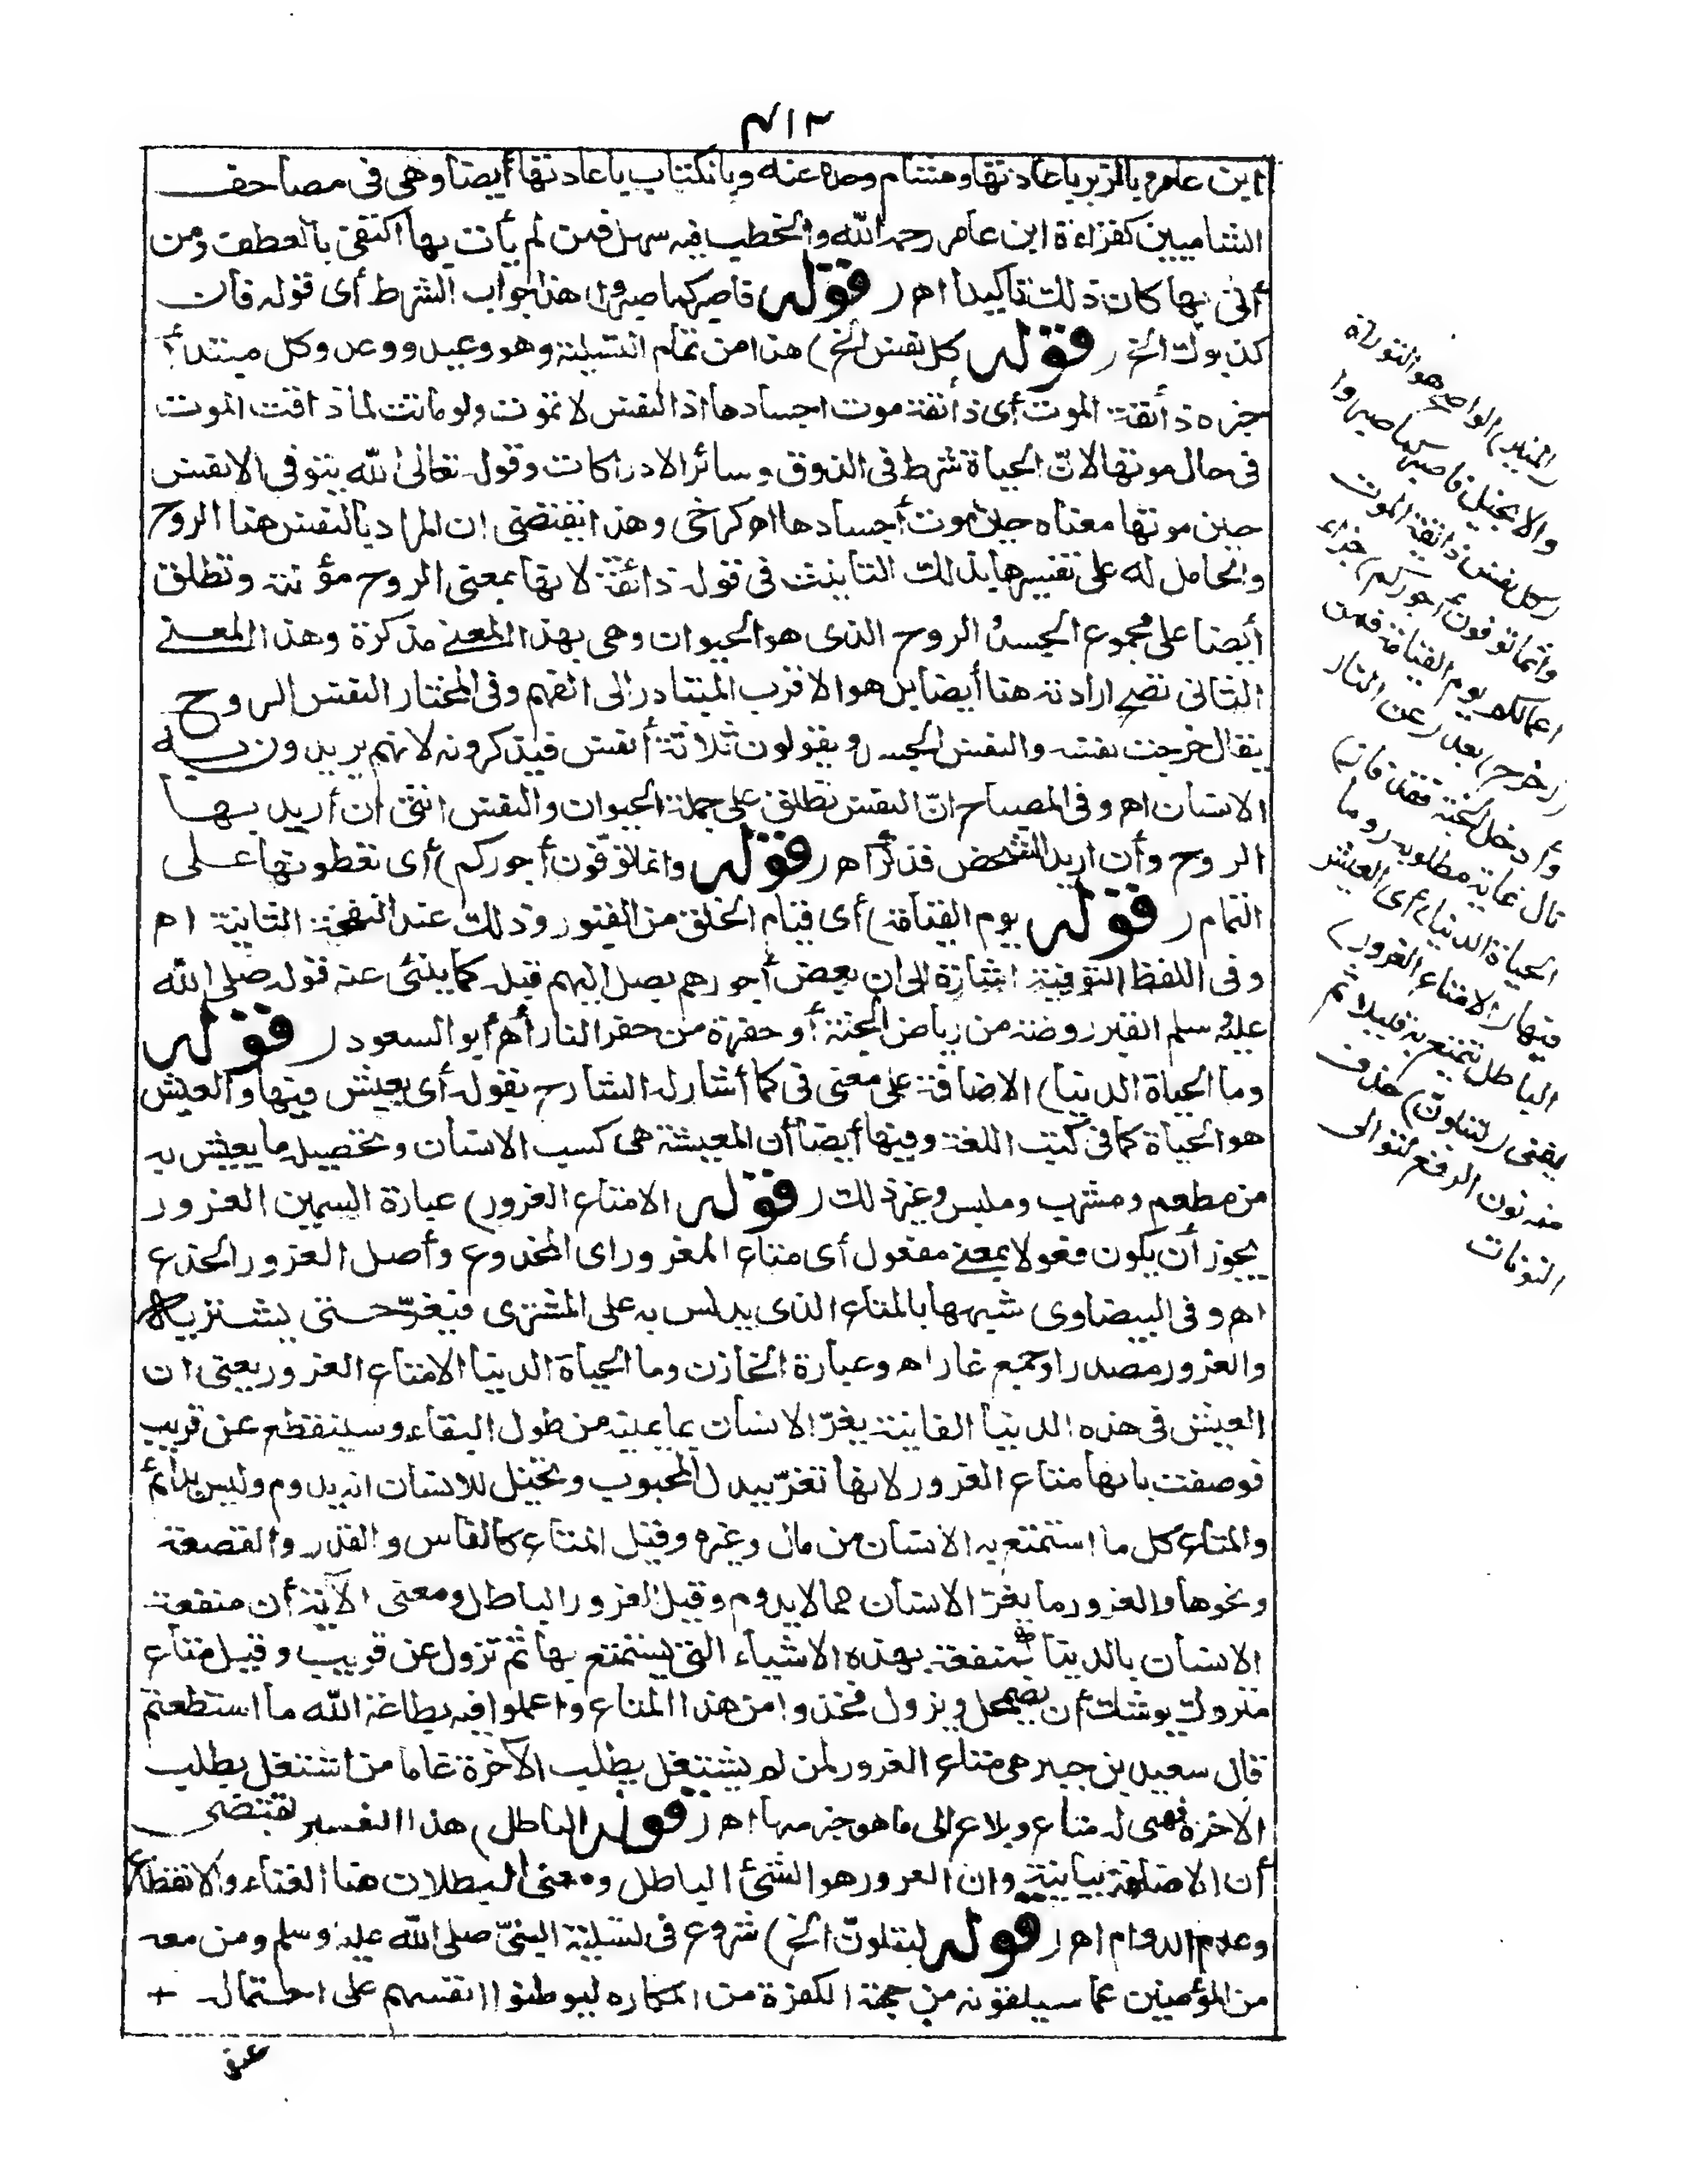 ٧١٢
ابن عامر وبالزبر باعادتها وهشام وحده عنه وبالكتاب باعادتها أيضا وهى فى مصاحف
الشاميين كقراءة ابن عامر رحمه الله والخطب فيه سهل فمن لم يأت بها اكتفى بالعطف ومن
أتى بها كان ذلك تأكيدا اهـ (قوله فاصبر كما صبروا) هذا جواب الشرط أى قوله فان
كذبوك الخ (قوله كل نفس الخ) هذا من تمام التسلية وهو وعيد ووعد وكل مبتدأ
خبره ذائقة الموت أى ذائقة موت اجسادها اذ النفس لا تموت ولو ماتت لما ذاقت الموت
فى حال موتها لانّ الحياة شرط فى الذوق وسائر الادراكات وقوله تعالى الله يتوفى الانفس
حين موتها معناه حين موت أجسادها اهـ كرخى وهذا يقتضى ان المراد بالنفس هنا الروح
والحامل له على تفسيرها بذلك التانيث فى قوله ذائقة لانها بمعنى الروح مؤنثة وتطلق
أيضا على مجموع الجسد والروح الذى هو الحيوان وهى بهذا المعنى مذكرة وهذا المعنى
الثانى تصح ارادته هنا أيضا بل هو الاقرب المتبادر الى الفهم وفى المختار النفس الروح
يقال خرجت نفسه والنفس الجسد ويقولون ثلاثة أنفس فيذكرونه لانهم يريدون به
الانسان اهـ وفى المصباح انّ النفس تطلق على جملة الحيوان والنفس انثى ان أريد بها
الروح وأن اريد الشخص فذكر اهـ (قوله وانما توفون أجوركم) أى تعطونها على
التمام (قوله يوم القيامة) أى قيام الخلق من القبور وذلك عند النفخة الثانية اهـ
وفى اللفظ التوفية اشارة الى ان بعض أجورهم يصل اليهم قبله كما ينبئ عنه قوله صلى الله
عليه سلم القبر روضة من رياض الجنة أو حفرة من حفر النار أهـ أبو السعود (قوله
وما الحياة الدنيا) الاضافة على معنى فى كما أشار له الشارح بقوله أى يعيش فيها والعيش
هو الحياة كما فى كتب اللغة وفيها أيضا أن المعيشة هى كسب الانسان وتحصيله ما يعيش به
من مطعم ومشرب وملبس وغير ذلك (قوله الا متاع الغرور) عبارة السمين الغرور
يجوز أن يكون فعولا بمعنى مفعول أى متاع المغرور اى المخدوع وأصل الغرور الخدع
اهـ وفى البيضاوى شبهها بالمتاع الذى يدلس به على المشترى فيغرّ حتى يشتريه
والغرور مصدر او جمع غار اهـ وعبارة الخازن وما الحياة الدنيا الا متاع الغرور يعنى ان
العيش فى هذه الدنيا الفانية يغرّ الانسان بما يمنيه من طول البقاء وسينقطع عن قريب
فوصفت بانها متاع الغرور لانها تغرّ ببذل المحبوب وتخيل للانسان انه يدوم وليس بدائم
والمتاع كل ما استمتع به الانسان من مال وغيره وقيل المتاع كالفاس والقدر والقصعة
ونحوها والغرور ما يغرّ الانسان مما لا يدوم وقيل الغرور الباطل ومعنى الآية أن منفعة
الانسان بالدنيا كمنفعته بهذه الاشياء التى يستمتع بها ثم تزول عن قريب وقيل متاع
متروك يوشك أن يضمحل ويزول فخذوا من هذا المتاع واعملوا فيه بطاعة الله ما استطعتم
قال سعيد بن جبير هى متاع الغرور لمن لم يشتغل بطلب الآخرة فاما من اشتغل بطلب
الاخرة فهى له متاع وبلاغ الى ما هو خير منها اهـ (قوله الباطل) هذا التفسير يقتضى
أن الاضافة بيانية وان الغرور هو الشئ الباطل ومعنى البطلان هنا الفناء والانقطاع
وعدم الدوام اهـ (قوله لتبلونّ الخ) شروع فى تسلية النبىّ صلى الله عليه وسلم ومن معه
من المؤمنين عما سيلقونه من جهة الكفرة من المكاره ليوطنوا انفسهم على احتمال
(المنير) الواضح هو التوراة
والانجيل فاصبر كما صبروا
(كل نفس ذائقة الموت
وانما توفون أجوركم) جزاء
اعمالكم (يوم القيامة فمن
زحزح) بعد (عن النار
وأدخل الجنة فقد فاز)
نال غاية مطلوبه (وما
الحياة الدنيا) أى العيش
فيها (الا متاع الغرور)
الباطل يتمتع به قليلا ثم
يفنى (لتبلونّ) حذف
منه نون الرفع لتوالى
النونات